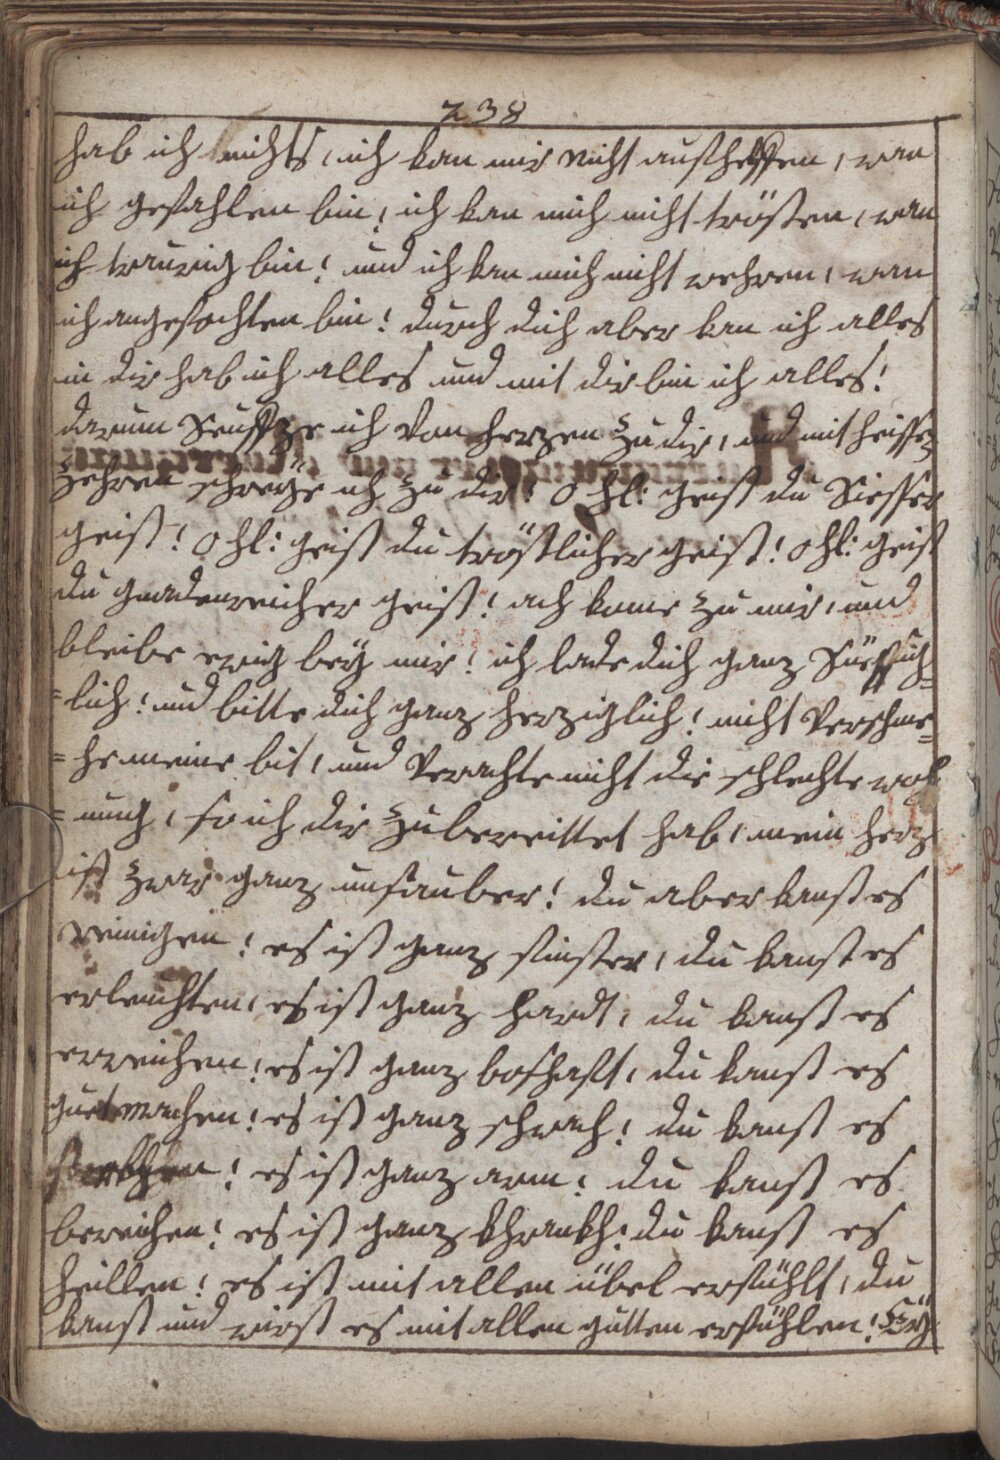 238
hab ich nichts, ich kan mir nicht aufhelffen, wan
ich gefahlen bin, ich kan mich nicht trösten, wan
ich traurig bin! und ich kan mich nicht wehren, wan
ich angefochten bin! durch dich aber kan ich alles
in dir hab ich alles und mit dir bin ich alles!
darum Seuffze ich von herzen zu dir, und mit heissen
zehren schreÿe ich zu dir! O hl: geist du Siesser
geist! O hl: geist du tröstlicher geist! O hl: geist
du gnadenreicher geist! ach kome zu mir, und
bleibe ewig beÿ mir! ich lade dich ganz
=lich! und bitte dich ganz herziglich! nicht verschme=
=he meine bit, und verachte nicht die schlechte woh
=nung, so ich dir zubereittet hab, mein herz
ist zwar ganz unsauber! du aber kanst es
reinigen! es ist ganz finster, du kanst es
erleuchten, es ist ganz hardt, du kanst es
erweichen! es ist ganz boshaft, du kanst es
guet machen! es ist ganz schwach! du kanst es
sterkhen! es ist ganz arm! du kanst es
bereichen! es ist ganz khrankh! du kanst es
heillen! es ist mit allen übel erfühlt, du
kanst und wirst es mit allen gutten erfühlen!